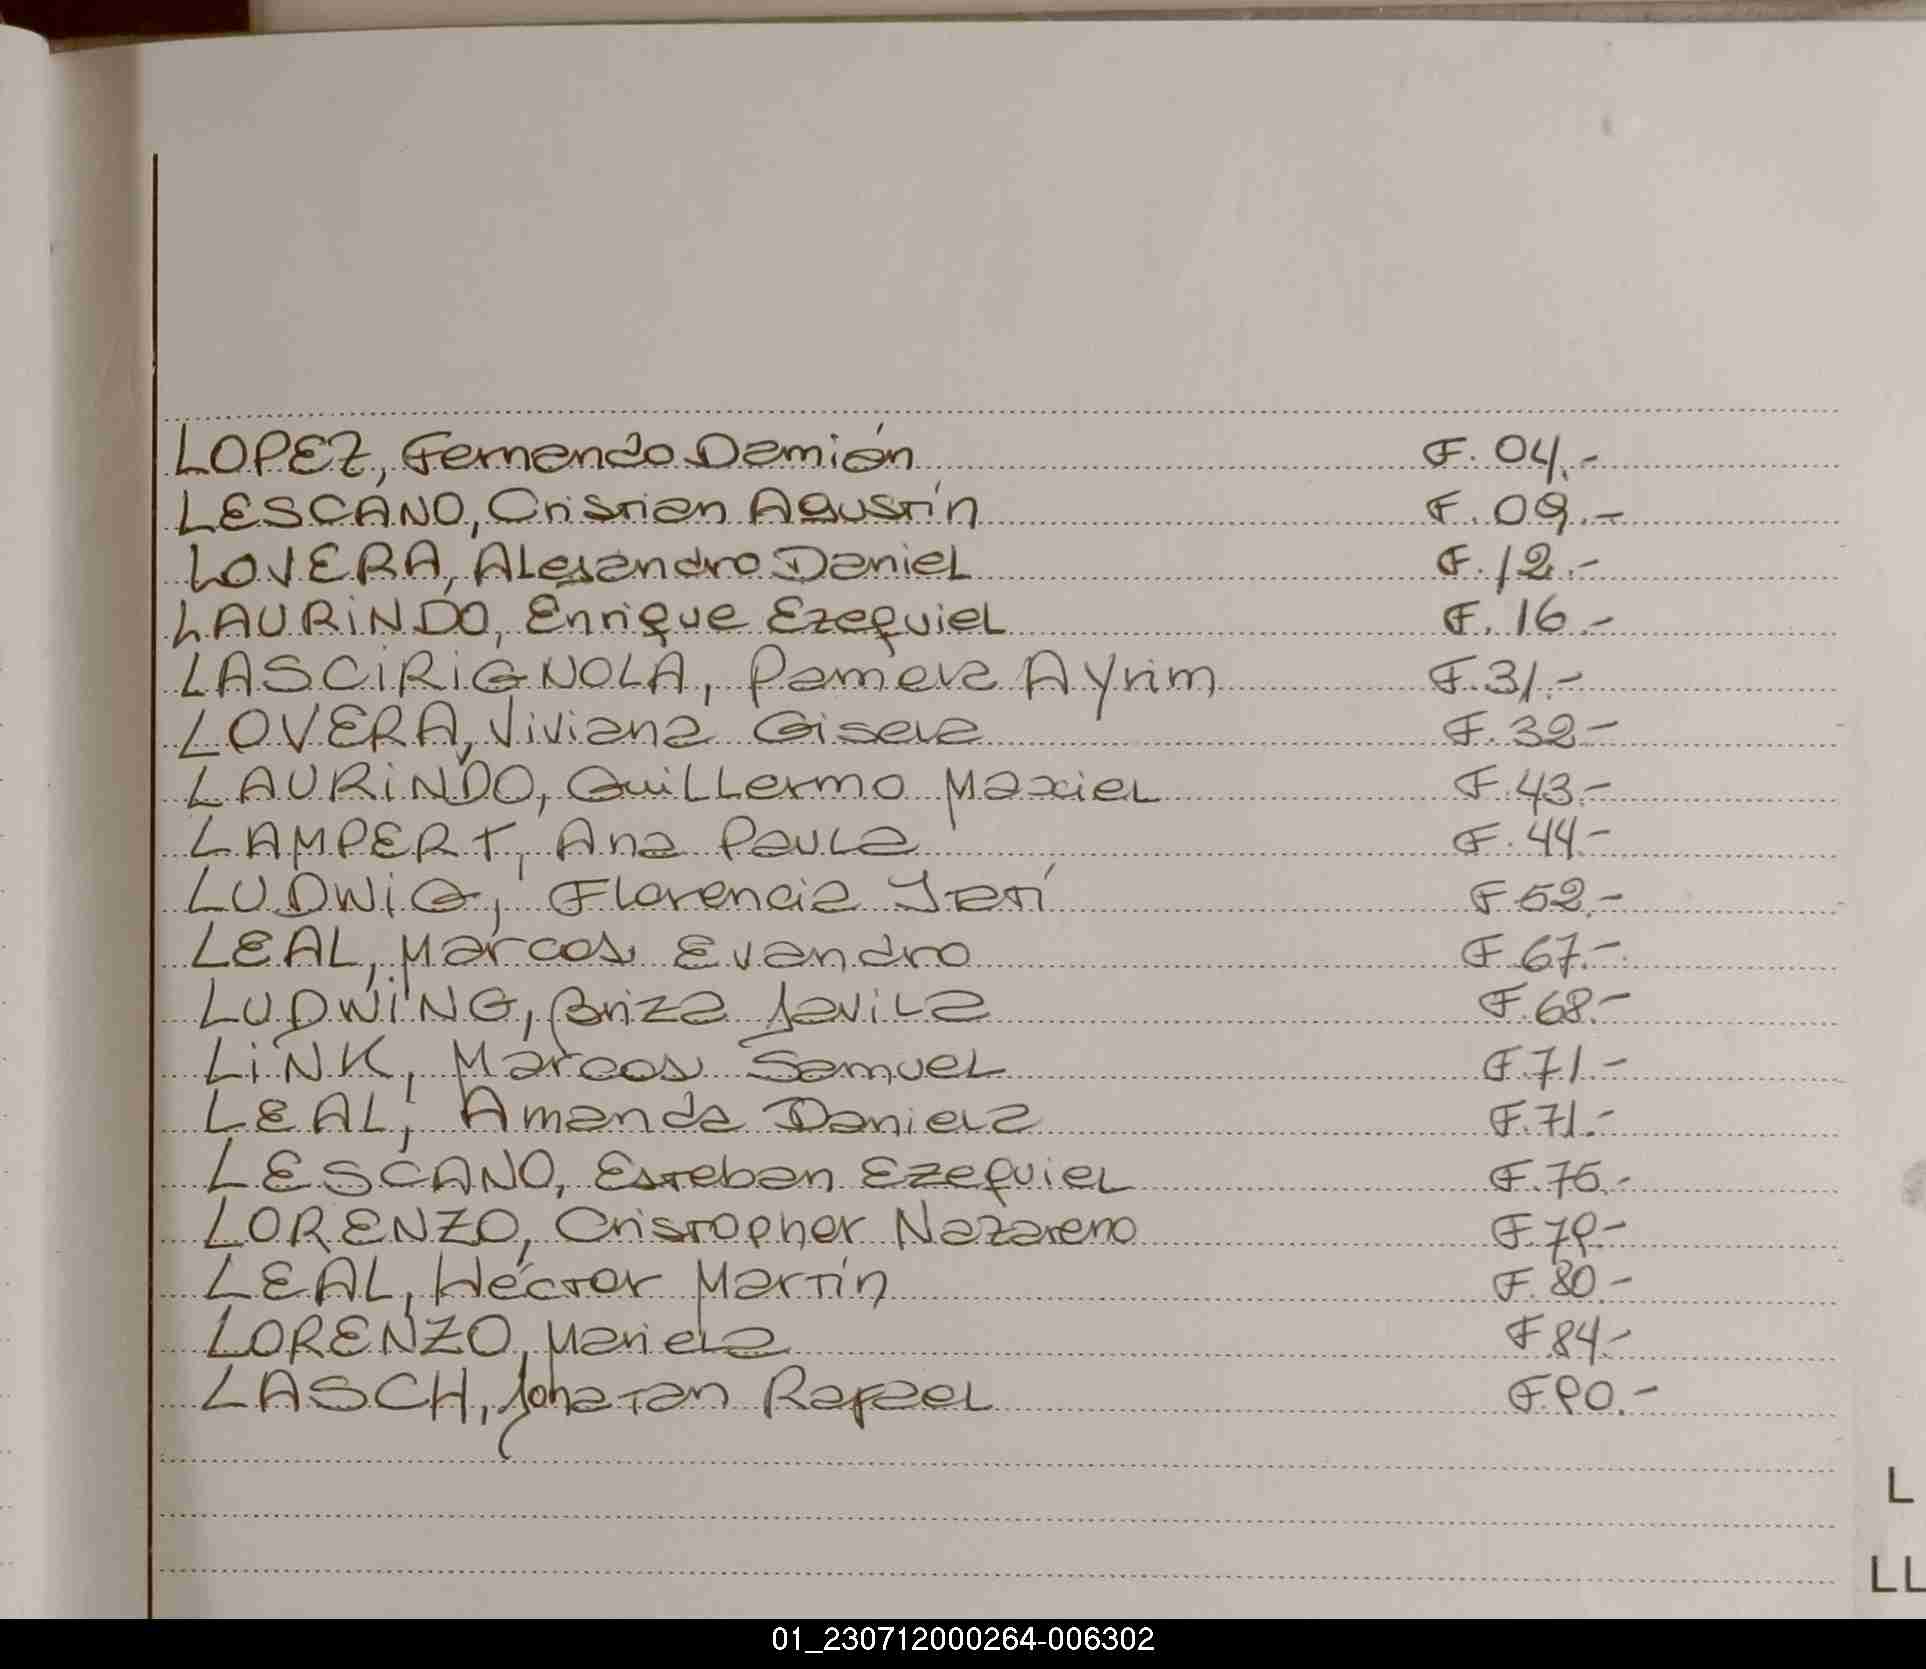 LOPEZ, Fernando Damián F. 04.-
LESCANO, Cristian Agustín F. 09.-
LOVERA, Alejandro Daniel F. 12.-
LAURINDO, Enrique Ezequiel F. 16.-
LASCIRIGNOLA, Pamela Ayrim F. 31.-
LOVERA, Viviana Gisela F. 32-
LAURINDO, Guillermo Maxiel F. 43.-
LAMPERT, Ana Paula F. 44-
LUDWIG, Florencia Itatí F 52.-
LEAL, Marcos Evandro F 67.-
LUDWING, Briza Javila F. 68.-
LINK, Marcos Samuel F. 71.-
LEAL, Amanda Daniela F. 71.-
LESCANO, Esteban Ezequiel F. 75.-
LORENZO, Cristopher Nazareno F. 79-
LEAL, Héctor Martín F. 80.-
LORENZO, Mariela F 84.-
LASCH, Jonatan Rafael F. 90.-
L
LL
01_230712000264-006302